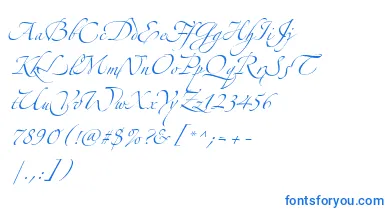 AaBbCcDdEeFfGgHhIiJj
KkLlMmNnOoPpQqRrSsT
tUuVvWwXxYyZz123456
7890(!@#$%?&[*^;=+-
|.,:])
fontsforyou.com